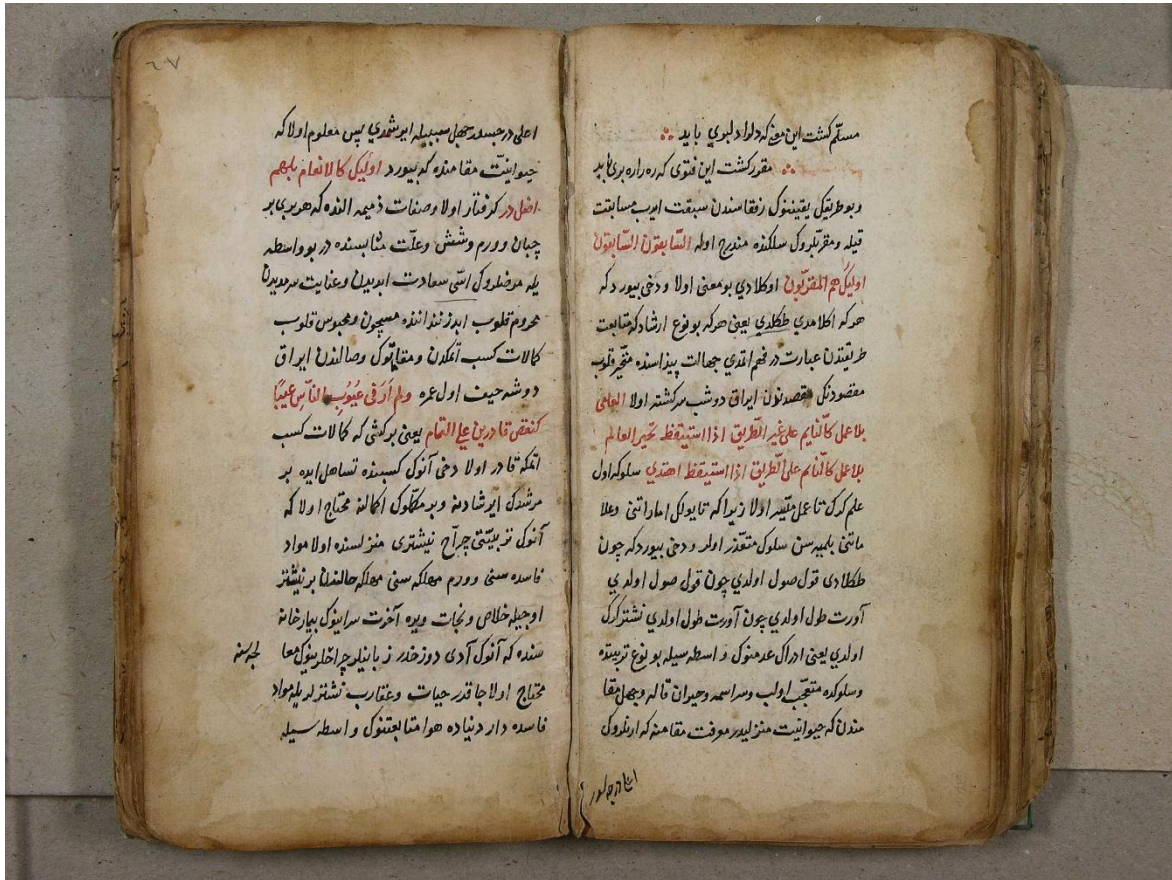 مسلّم كشت اين معنى كه دلرا دلبوي بايد
مقرر كشت اين فتوى كه ره راره برى بايد
و بو طريقك يقيننوك رفقاسندن سبقت ايدب مسابقت
قيله و مقرّبلروك سلكنده مندرج اوله السّابقون السّابقون
اوليك هم المقرّبون اوكلادي بو معنى اولا و دخى بيورد كه
هركه اكلامدي طكلدي يعنى هركه بو نوع ارشاد كه متابعت
طريقتدن عبارت در فهم اتمدي جهالت پيداسنده متحيّر قلوب
مقصودنك مقصدندن ايراق دوشب سركشته اولا العلمى
بلا عمل كالنّايم على غير الطّريق اذا استيقظ تحيّر العالم
بلا عمل كالنّايم على الطّريق اذا استيقظ اهتدي سلوكه اول
علم كرك تا عمل ميسّر اولا زيرا كه تا يولك اماراتنى و علا
ماتنى بلميسن سلوك متعذّر اولر و دخى بيورد كه چون
طكلادي قول صول اولدي چون قول صول اولدي
آورت طول اولدي چون آورت طول اولدي نشتر كرك
اولدي يعنى ادراك عدمنوك واسطه سيله بو نوع تربيتده
و سلوكده متعجّب اولب و سراسمه و حيران قاله و جهل مقا
مندن كه حيوانيت منزليدر معرفت مقامنه كه ارنلروك
اعلى درجه لدر
٦٧
اعلى درجسدر جهل سببيله ايرشمدي پس معلوم اولا كه
حيوانيّت مقامنده كه بيورد اوليك كالانعام بلهم
اضل در كرفتار اولا و صفات ذميمه النده كه هر برى بر
چبان و ورم و شش و علّت مثابسنده در بو واسطه
يله مرضلروك اسّى سعادت ابديدن و عنايت سرمديدن
محروم قلوب ابد زنداننده مسجون و محبوس قلوب
كمالات كسب اتمكدن و مقاتوك وصالندن ايراق
دوشه حيف اول عمره ولم ار فى عيوب النّاس عيبًا
كنقص قادرين على التمام يعنى بر كشى كه كمالات كسب
اتمكه قادر اولا دخى آنوك كسبنده تساهل ايده بر
مرشدك ايرشادينه و بر مكمّلوك اكمالنه محتاج اولا كه
آنوك تربيتى جرّاح نيشترى منزلسنده اولا مواد
فاسده سنى و ورم مهلكه سنى مهلكه حالندن بر نيشتر
اوجيله خلاص و نجات ويره آخرت سراينوك بيمارخانه
سنده كه آنوك آدى دوزخدر زبانيلر جراحلرينوك معا
لجه سنه
محتاج اولا جا قدر حيات و عقارب نشترلريله مواد
فاسده دار دنياده هوا متابعتنوك واسطه سيله